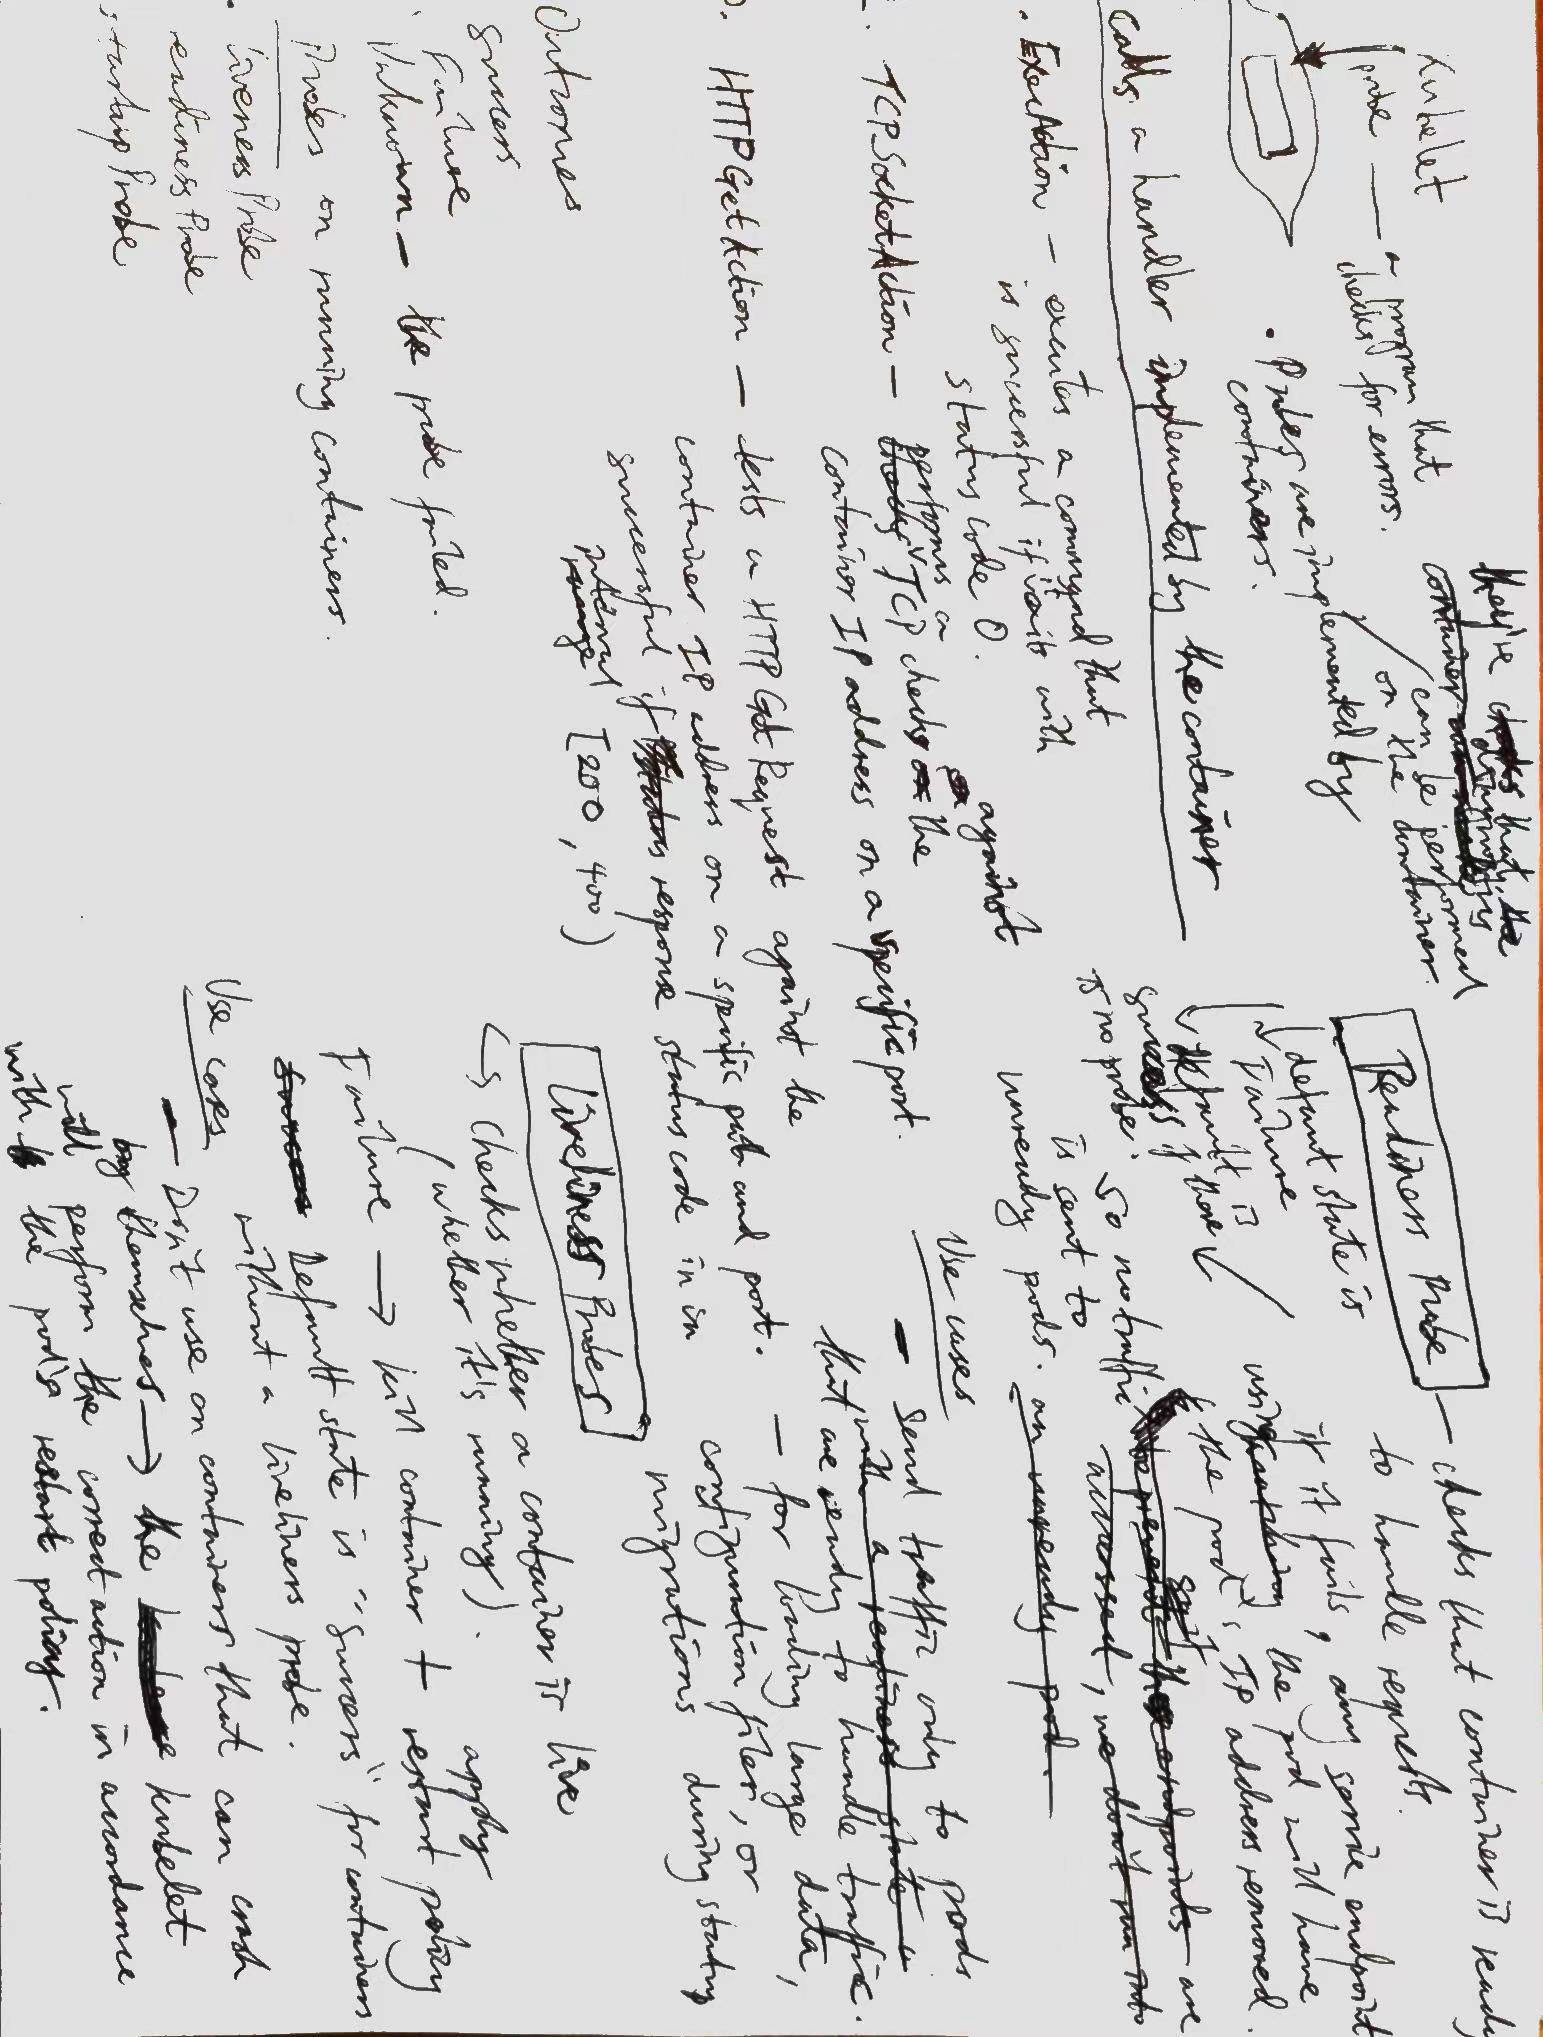 Kubelet
probe — a program that
checks for errors.
they're
can be performed
on the container.
• Probes are implemented by
containers.
calls a handler implemented by the container
• ExecAction — executes a command that
is successful if it exits with
status code 0.
TCPSocketAction — performs a TCP checks the
against
container IP address on a specific port.
HTTPGetAction — tests a HTTP Get Request against the
container IP address on a specific path and port.
successful if response status code in in
interval [200, 400)
Outcomes
success
Failure
Unknown — the probe failed.
Probes on running containers.
• liveness Probe
readiness Probe
startup Probe
Readiness Probe — checks that container is ready
to handle requests.
default state is
Failure
default is
success if there
is no probe.
if it fails, any service endpoint
using the pod will have
the pod's IP address removed.
so no traffic
is sent to
unready pods.
an unready pod.
accessed, we don't run into
Use cases
— Send traffic only to pods
with a readiness state
that are ready to handle traffic.
— for loading large data,
configuration files, or
migrations during startup
Liveliness Probes
↳ Checks whether a container is live
(whether it's running).
Failure → kill container + restart policy
apply
Default state is "success" for containers
without a liveliness probe.
Use cases
— Don't use on containers that can crash
by themselves → the kubelet
will perform the correct action in accordance
with the pod's restart policy.